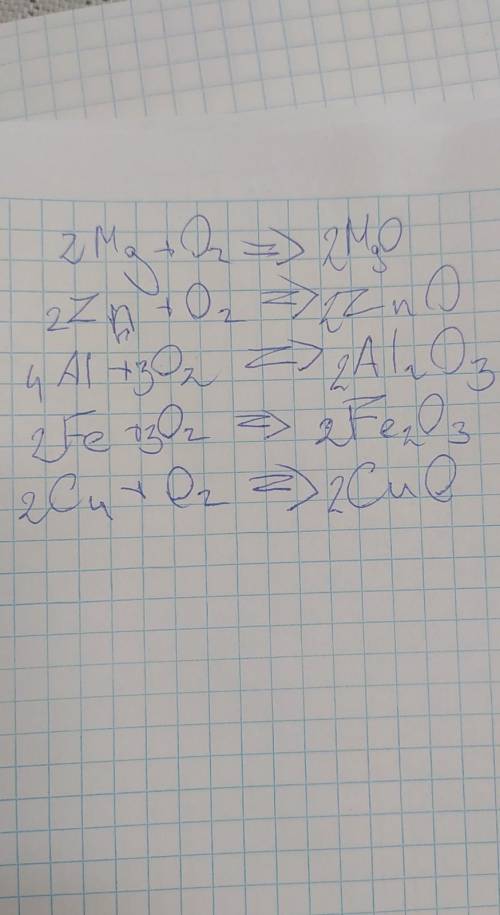 2Mg + O₂ => 2MgO
2Zn + O₂ => 2ZnO
4Al + 3O₂ => 2Al₂O₃
2Fe + 3O₂ => 2Fe₂O₃
2Cu + O₂ => 2CuO